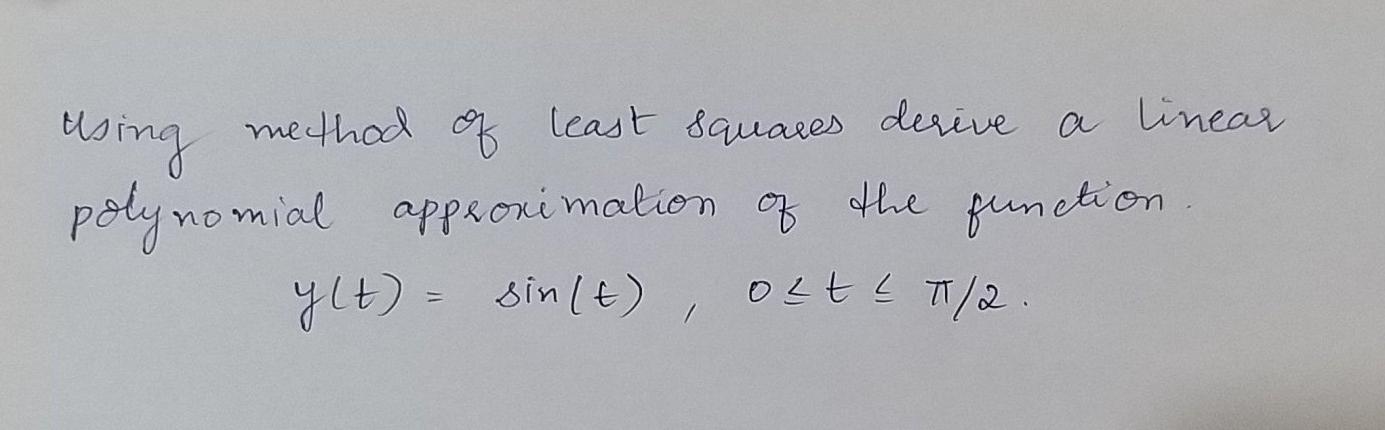 Using method of least squares derive a linear
polynomial approximation of the function.
y(t) = sin(t) , 0 ≤ t ≤ π/2.